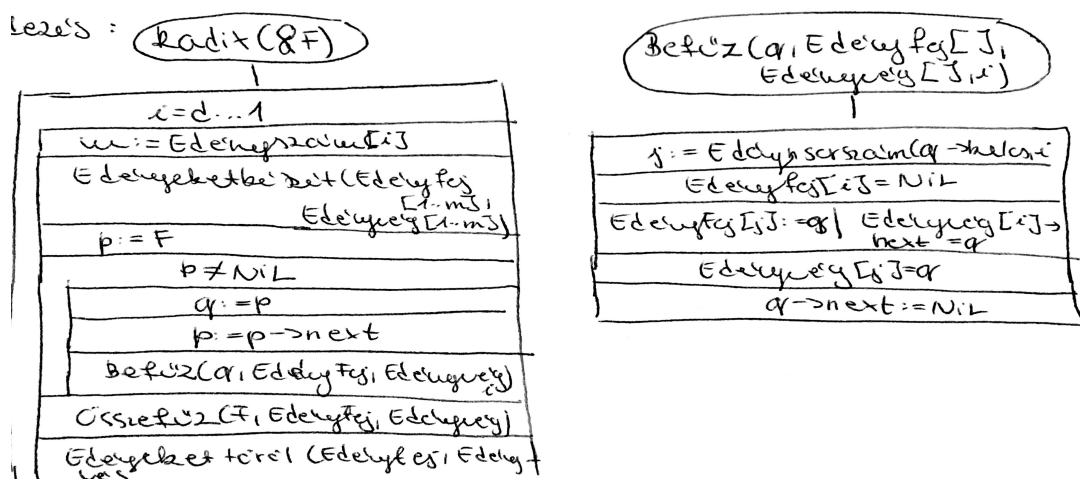 Radix(&F)
i=d...1
m:=Edényszám[i]
Edényeketkészít(Edényfej
[1..m],
Edényvég[1..m])
p:=F
p≠NiL
q:=p
p:=p->next
Befűz(q,EdényFej,Edényvég,
i)
Összefűz(F,EdényFej,Edényvég)
Edényeket töröl(Edényfej,Edény-
vég
Befűz(q,Edényfej[],
Edényvég[],i)
j:=Edénysorszám(q->kulcs,i
Edényfej[i]=NiL
EdényFej[j]:=q| Edényvég[i]->
next=q
Edényvég[j]=q
q->next:=NiL